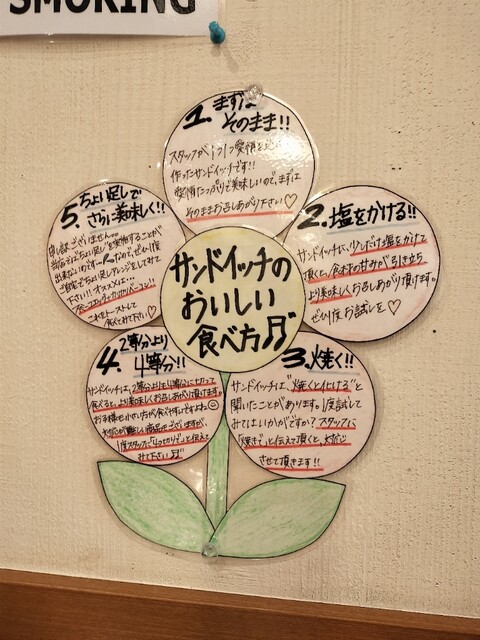 SMOKING
サンドイッチの
おいしい
食べ方♬
1. まずは
そのまま!!
スタッフが1つ1つ愛情を込め
作ったサンドイッチです!!
愛情たっぷりで美味しいので、まずは
そのままお召しあがり下さい♡
2. 塩をかける!!
サンドイッチに、少しだけ塩をかけて
頂くと、食材の甘みが引き立ち
より美味しくお召しあがり頂けます。
ぜひ1度お試しを♡
3. 焼く!!
サンドイッチは、"焼くと化ける"と
聞いたことがあります。1度試して
みてはいかがですか?スタッフに
"焼き"と伝えて頂くと、対応
させて頂きます!!
4. 2等分より
4等分!!
サンドイッチは、2等分よりも4等分に切って
食べると、より美味しくお召しあがり頂けます。
お子様や小さい方が食べやすいですよね☺
商品もございますが、
1度スタッフに"4つ切りで"と伝えて
みて下さい♬
5. ちょい足しで
さらに美味しく!!
申し訳ございません。
当店では"ちょい足し"を実施することが
出来ないのですが、ぜひ1度
ご自宅でちょい足しアレンジをしてみて
下さい!!オススメは…
これをトーストして
食べてみて下さい♡